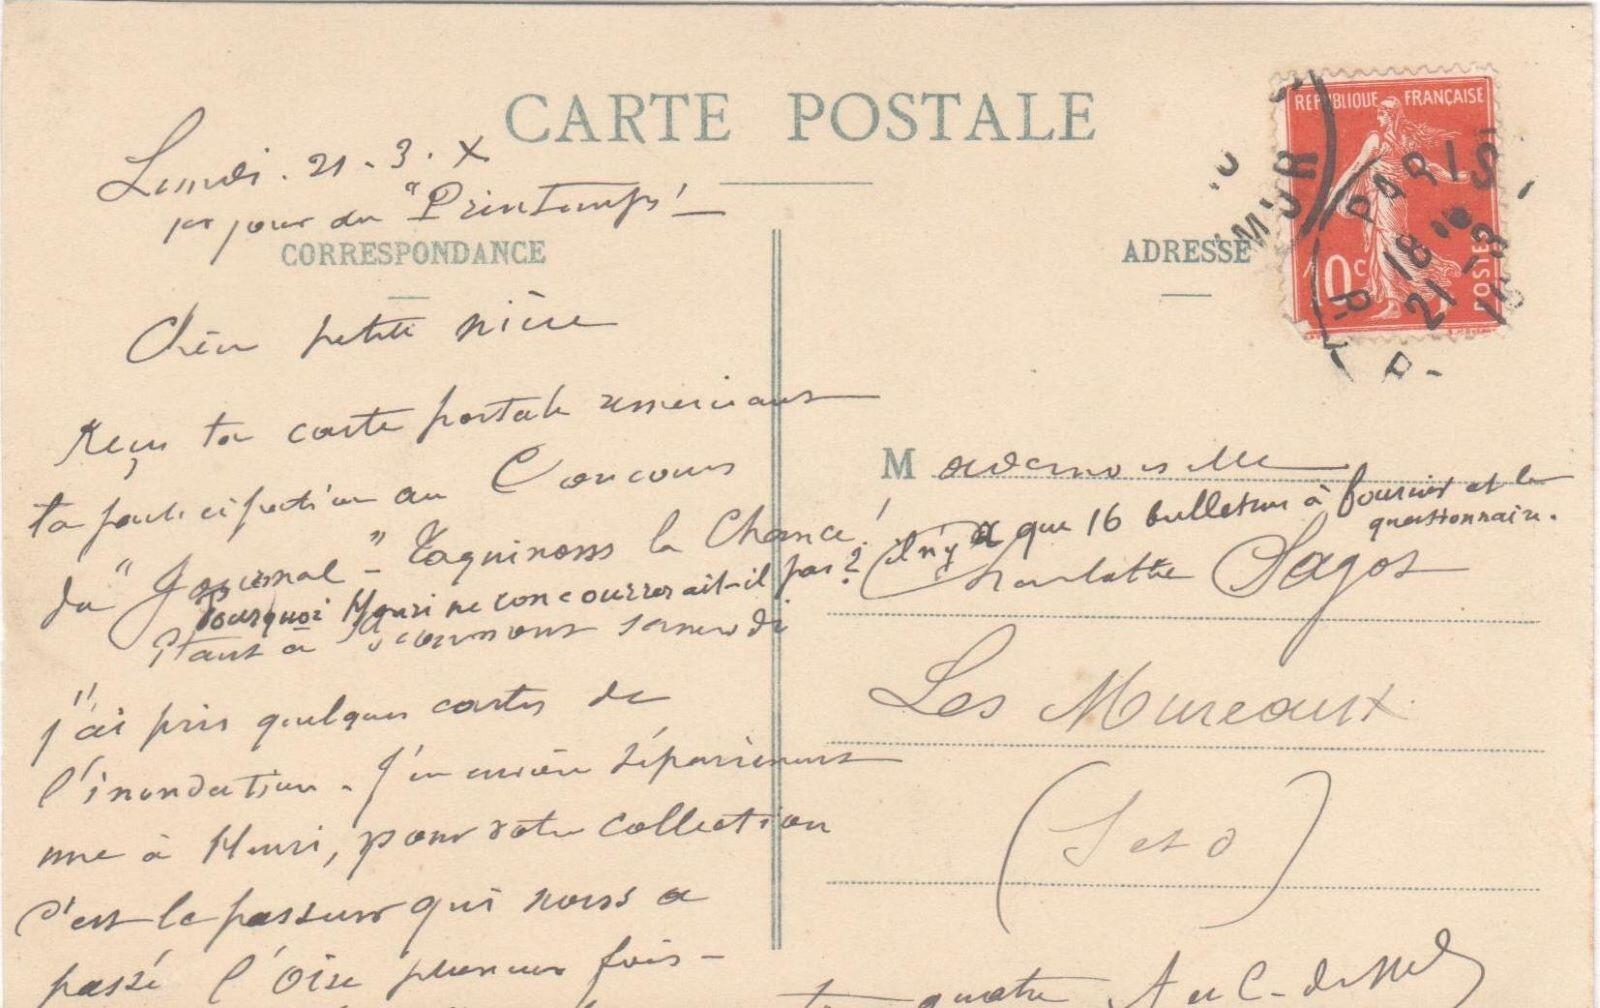 CARTE POSTALE
Lundi . 21 . 3 . X
1er jour du "Printemps"
CORRESPONDANCE
Chère petite nièce
Reçu ta carte postale
ta participation au Concours
du "Journal" - Taquinons la Chance!
Pourquoi Henri ne concourrerait-il pas? (il n'y a que 16 bulletins à fournir et le
questionnaire.
Etant à samedi
j'ai pris quelques cartes de
l'inondation. J'en envoie séparément
une à Henri, pour votre collection
C'est le passeur qui nous a
passé l'Oise plusieurs fois -
ADRESSE
REPUBLIQUE FRANÇAISE
10c
POSTES
PARIS
18
21 - 3
Mademoiselle
Charlotte Sagot
Les Mureaux
(S et O)
quatre